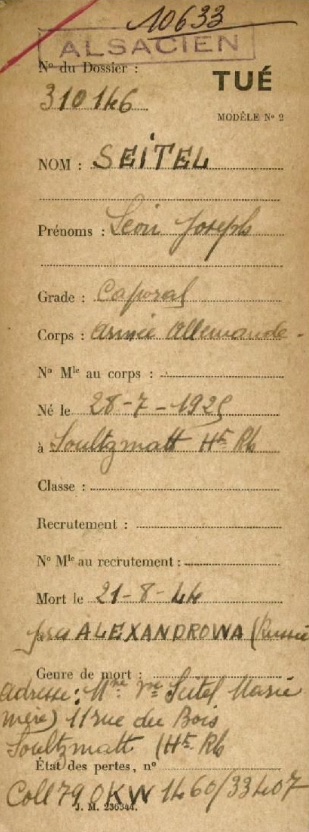 10633
ALSACIEN
N° du Dossier :
310146
TUÉ
MODÈLE N° 2
NOM : SEITEL
Prénoms : Léon Joseph
Grade : Caporal
Corps : armée Allemande -
N° Mle au corps :
Né le 28-7-1925
à Soultzmatt Ht Rh
Classe :
Recrutement :
N° Mle au recrutement :
Mort le 21-8-44
près ALEXANDROWA (Russie
Genre de mort :
adresse : Mme Vve Seitel Marie
(mère) 11 rue du Bois
Soultzmatt (Ht Rh
État des pertes, n°
Coll 79 OKW 1460/33407
J. M. 230344.